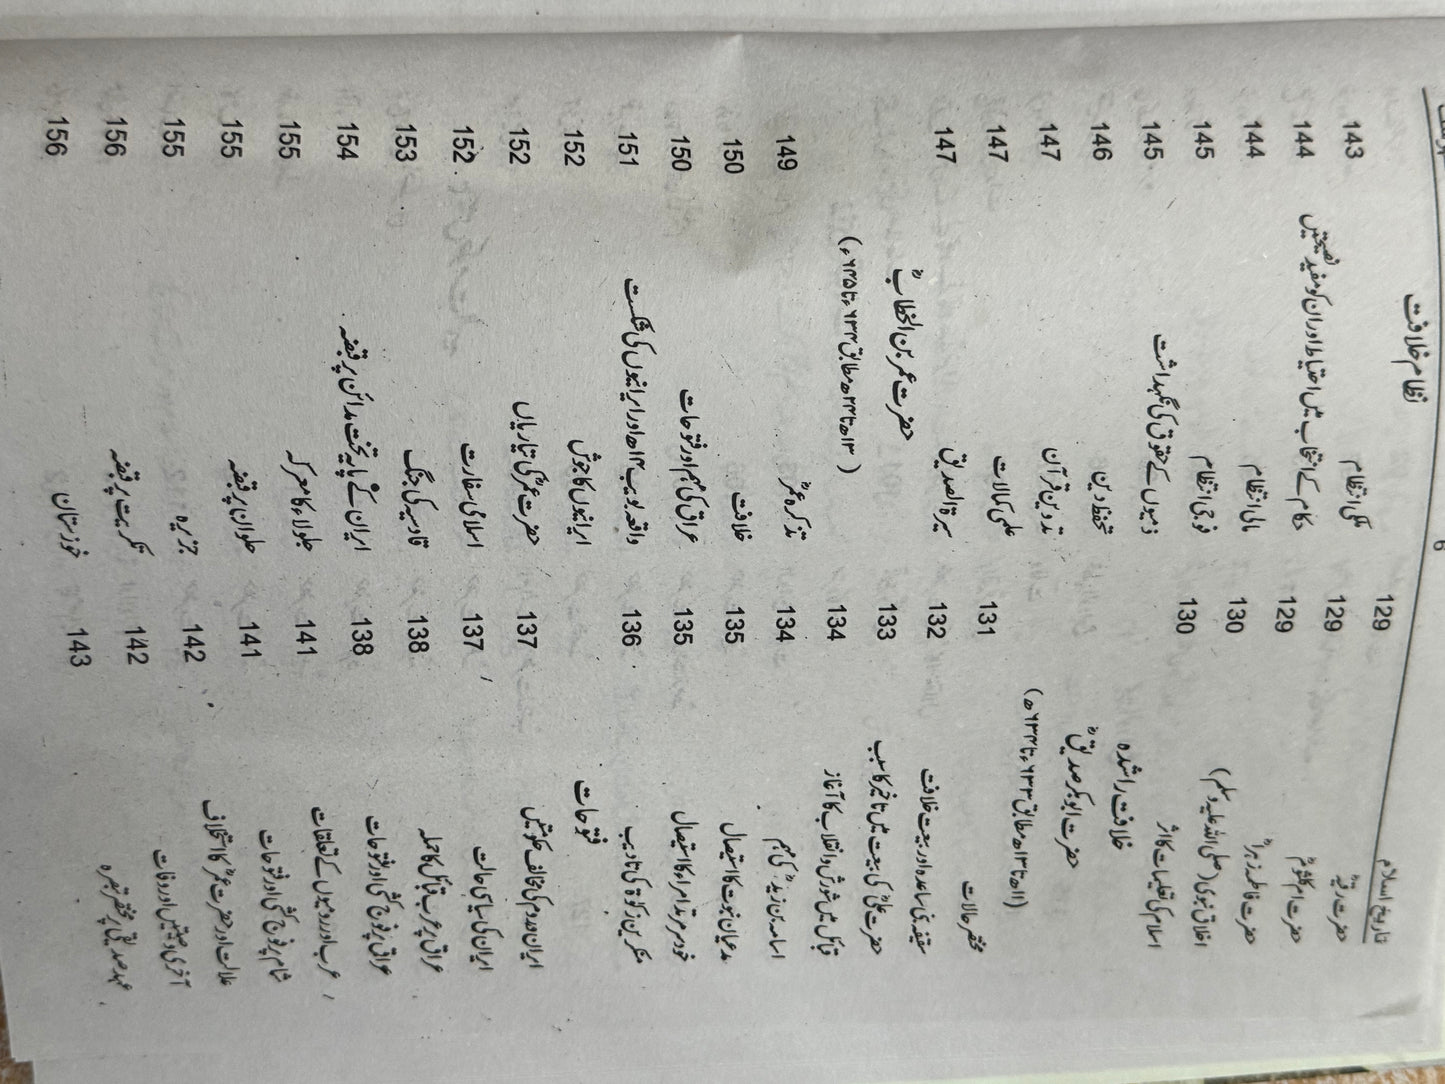 تاریخ اسلام
6
حضرت رقیہؓ 129
حضرت ام کلثومؓ 129
حضرت فاطمہ زہراؓ 129
اخلاق نبوی (صلی اللہ علیہ وسلم) 130
اسلام کی تعلیمات کا اثر 130
خلافت راشدہ
حضرت ابوبکر صدیقؓ
(۱۱ھ تا ۱۳ھ مطابق ۶۳۳ء تا ۶۳۴ء)
مختصر حالات 131
سقیفہ بنی ساعدہ اور بیعت خلافت 132
حضرت علیؓ کی بیعت میں تاخیر کا سبب 133
قبائل میں شورش و انقلاب کا آغاز 134
اسامہ بن زیدؓ کی مہم 134
مدعیان نبوت کا استیصال 135
خودسر مرتد امراء کا استیصال 135
منکرین زکوٰۃ کی تادیب 136
فتوحات
ایران و روم کی مخالف حکومتیں 137
ایران کی سیاسی حالت 137
عراق پر عرب قبائل کا حملہ 138
عراق پر فوج کشی اور فتوحات 138
عرب اور رومیوں کے تعلقات 141
شام پر فوج کشی اور فتوحات 141
علالت اور حضرت عمرؓ کا استخلاف 142
آخری وصیتیں اور وفات 142
عہد صدیقی پر مختصر تبصرہ 143
نظام خلافت
ملکی انتظام 143
حکام کے انتخاب میں احتیاط اور ان کو مفید نصیحتیں 144
مالی انتظام 144
فوجی انتظام 145
ذمیوں کے حقوق کی نگہداشت 145
تحفظ دین 146
تدوین قرآن 147
علمی کمالات 147
سیرۃ الصدیقؓ 147
حضرت عمر بن الخطابؓ
(۱۳ھ تا ۲۳ھ مطابق ۶۳۴ء تا ۶۴۵ء)
تذکرہ عمرؓ 149
خلافت 150
عراق کی مہم اور فتوحات 150
واقعہ بویب ۱۴ھ اور ایرانیوں کی شکست 151
ایرانیوں کا جوش 152
حضرت عمرؓ کی تیاریاں 152
اسلامی سفارت 152
قادسیہ کی جنگ 153
ایران کے پایہ تخت مدائن پر قبضہ 154
جلولاء کا معرکہ 155
حلوان پر قبضہ 155
جزیرہ 155
تکریت پر قبضہ 156
خوزستان 156